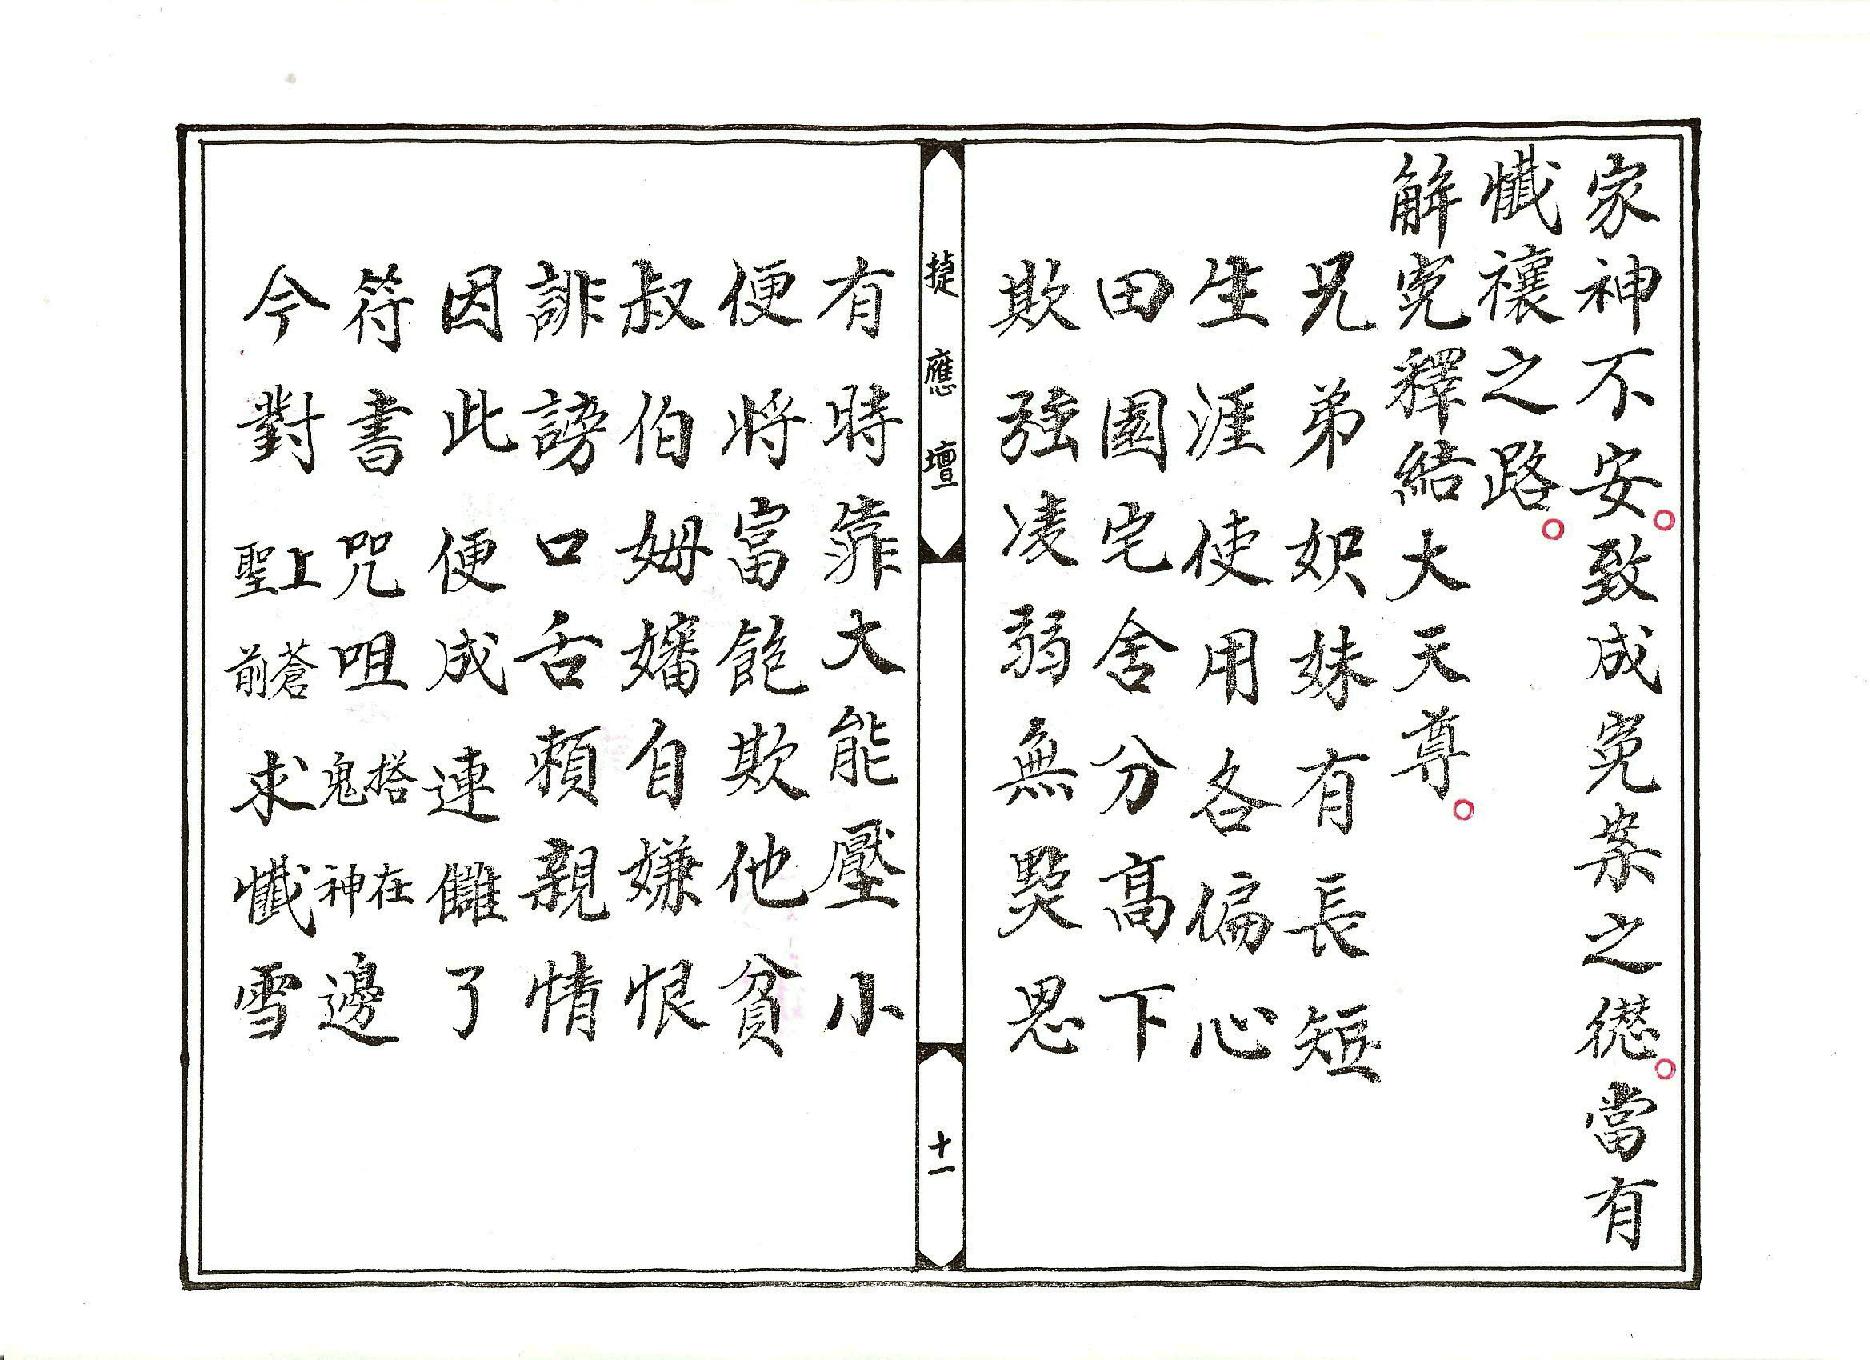 家神不安。致成寃案之愆。當有
懺禳之路。
觧寃釋結大天尊。
兄弟妹有長短
生涯使用各偏心
田園宅舍分高下
欺強凌弱無
捷應壇
十一
有時靠大能壓小
便將富飽欺他貧
叔伯姆嬸自嫌恨
誹謗口舌賴親情
因此便成連讎了
符書咒咀搭在鬼神邊
今對上蒼聖前求懺雪